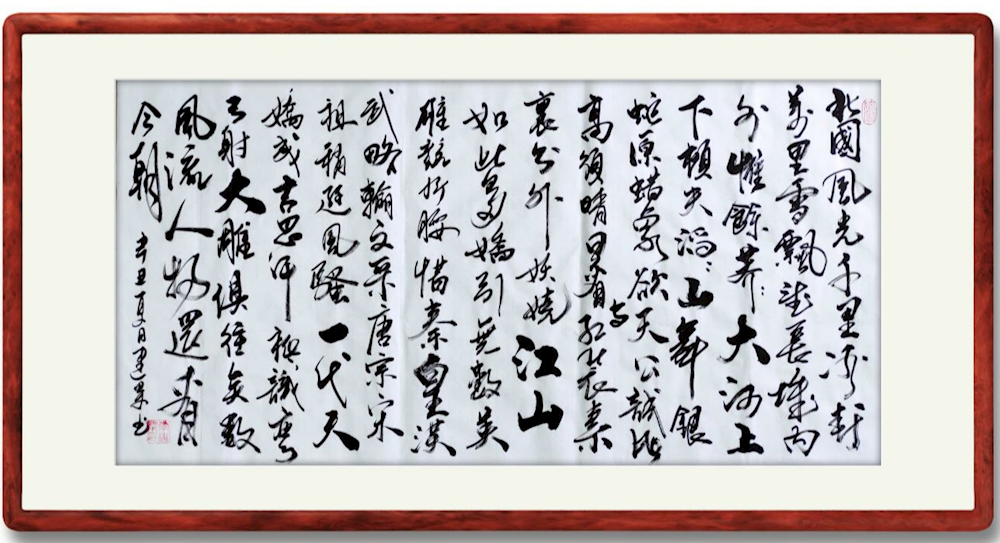 北國風光千里冰封
萬里雪飄望長城内
外惟餘莽々大河上
下頓失滔々山舞銀
蛇原蜡象欲与天公試比
高須晴日看红装素
裹分外妖嬈江山
如此多嬌引無數英
雄競折腰惜秦皇漢
武略輸文采唐宗宋
祖稍遜風騷一代天
嬌成吉思汗祇識彎
弓射大雕俱往矣數
風流人物還看
今朝
辛丑夏月建書